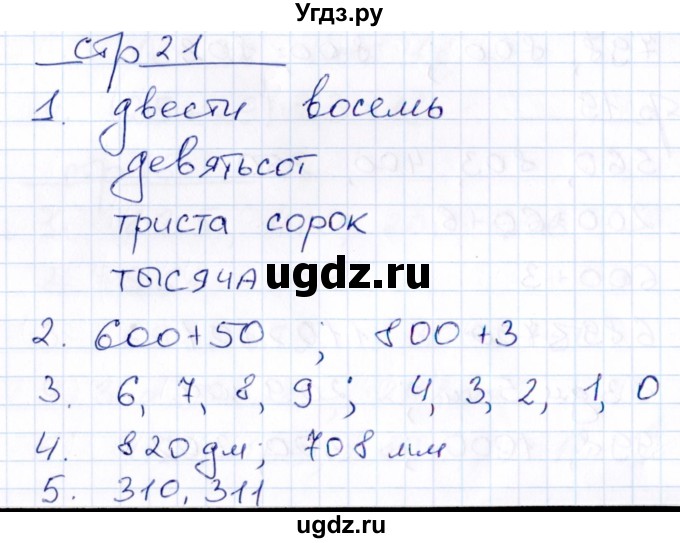 Угдз.ру
стр 21
1. двести восемь
девятьсот
триста сорок
тысяча
ugdz.ru
2. 600+50 ; 800+3
3. 6, 7, 8, 9 ; 4, 3, 2, 1, 0
4. 820 дм; 708 мм
5. 310, 311
ugdz.ru